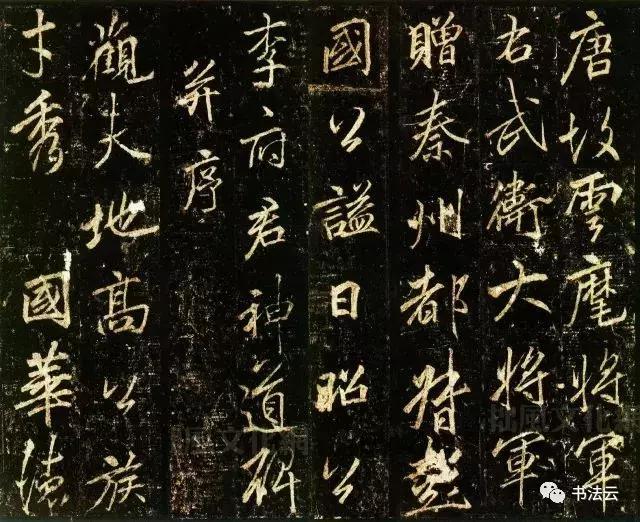 唐故雲麾將軍
右武衛大將軍
贈秦州都督彭
國公謚曰昭公
李府君神道碑
并序
觀夫地高公族
才秀 國華德
书法云